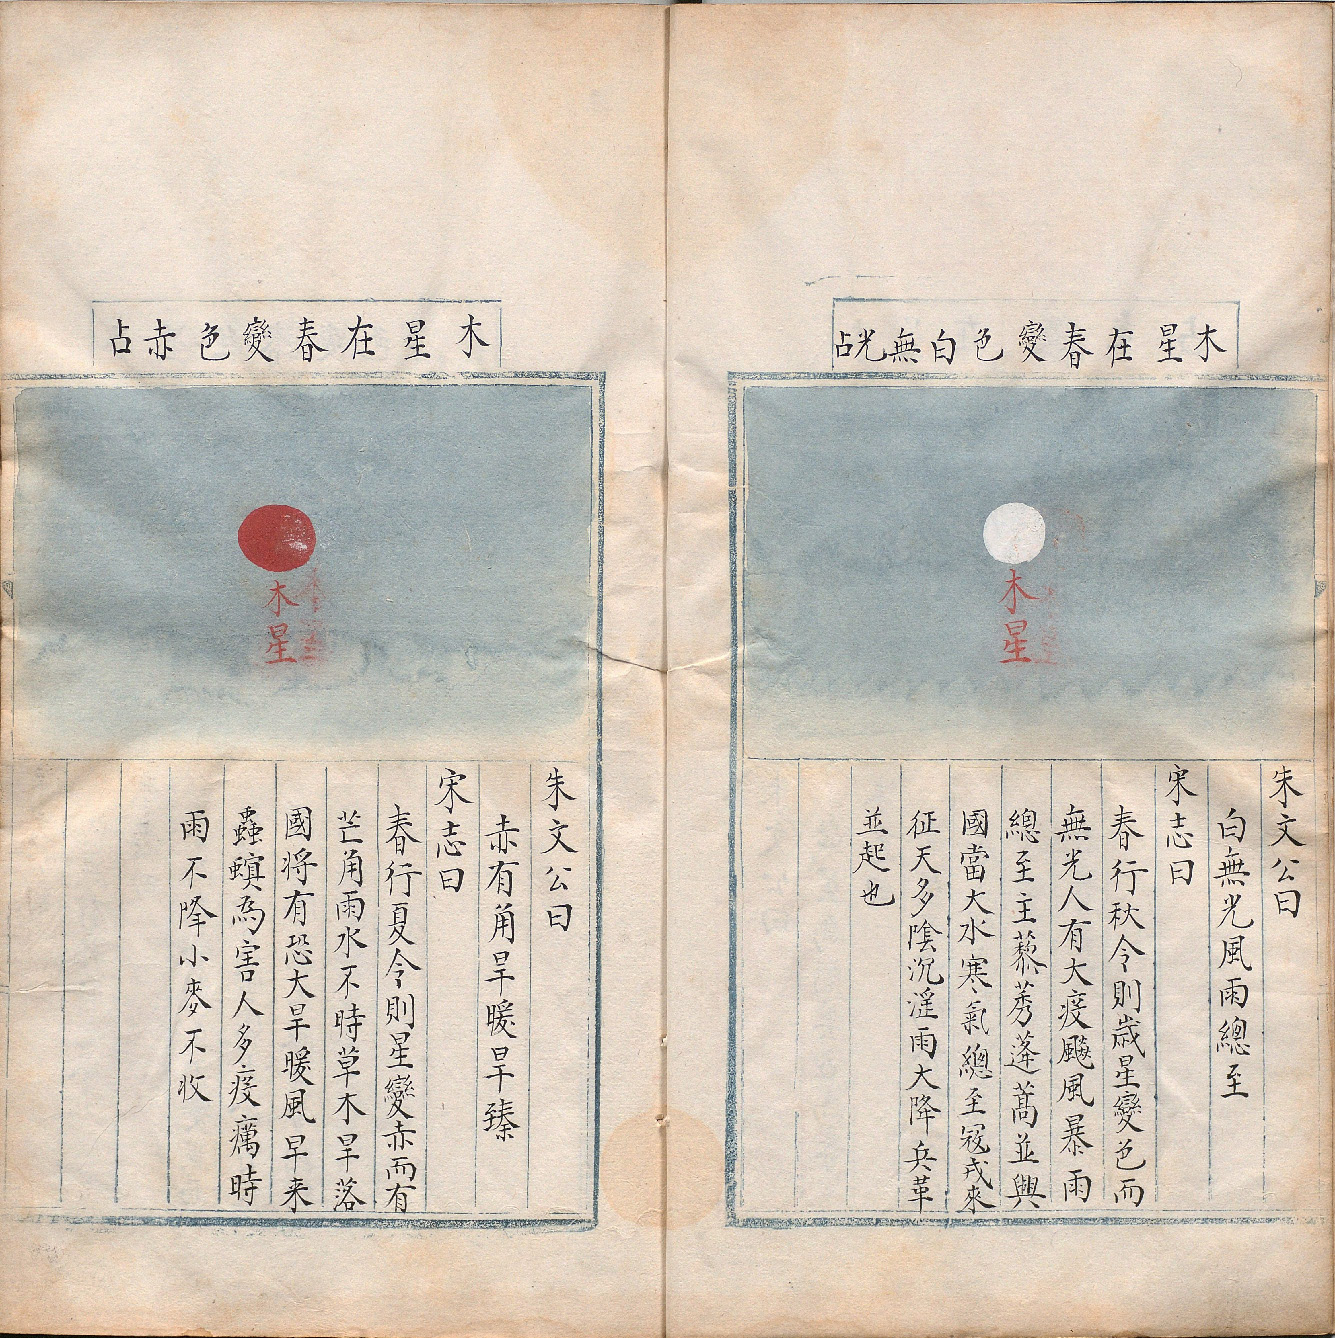 木星在春變色白無光占
木星
朱文公曰
白無光風雨總至
宋志曰
春行秋令則歲星變色而
無光人有大疫飈風暴雨
總至主藜莠蓬蒿並興
國當大水寒氣總至寇戎來
征天多陰沉滛雨大降兵革
並起也
木星在春變色赤占
木星
朱文公曰
赤有角旱暖旱臻
宋志曰
春行夏令則星變赤而有
芒角雨水不時草木旱落
國將有恐大旱暖風早来
蟲螟為害人多疫癘時
雨不降小麥不收